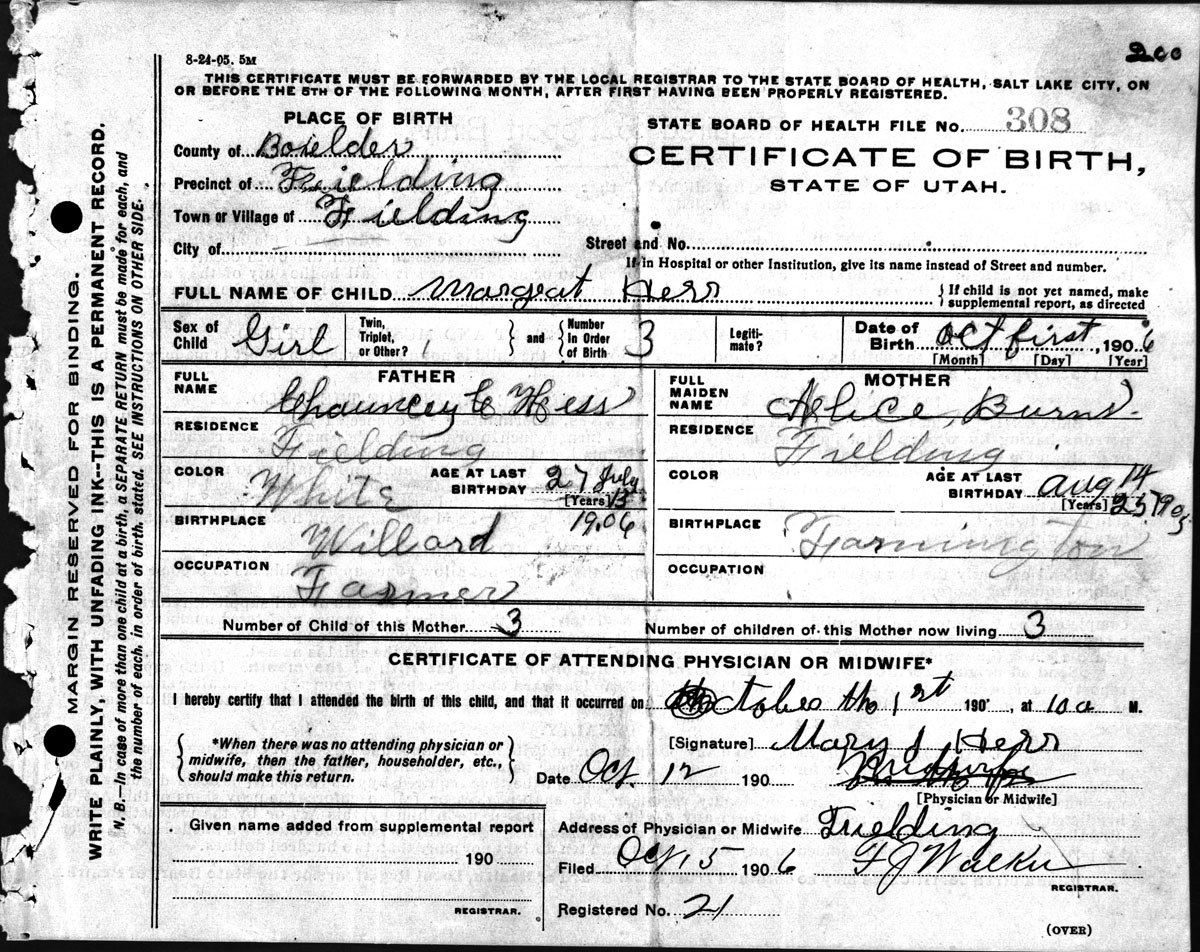 200
8-24-05. 5M
THIS CERTIFICATE MUST BE FORWARDED BY THE LOCAL REGISTRAR TO THE STATE BOARD OF HEALTH, SALT LAKE CITY, ON
OR BEFORE THE 5TH OF THE FOLLOWING MONTH, AFTER FIRST HAVING BEEN PROPERLY REGISTERED.
MARGIN RESERVED FOR BINDING.
WRITE PLAINLY, WITH UNFADING INK--THIS IS A PERMANENT RECORD.
N. B.—In case of more than one child at a birth, a SEPARATE RETURN must be made for each, and
the number of each, in order of birth, stated. SEE INSTRUCTIONS ON OTHER SIDE.
PLACE OF BIRTH
County of Boxelder
Precinct of Fielding
Town or Village of Fielding
City of
STATE BOARD OF HEALTH FILE NO. 308
CERTIFICATE OF BIRTH,
STATE OF UTAH.
Street and No.
If in Hospital or other Institution, give its name instead of Street and number.
FULL NAME OF CHILD Margeat Hess
{If child is not yet named, make
supplemental report, as directed
Sex of Child Girl
Twin, Triplet, or Other?
} and {
Number In Order of Birth 3
Legiti-mate?
Date of Birth Oct first, 1906
[Month] [Day] [Year]
FATHER
FULL NAME Chauncey C Hess
RESIDENCE Fielding
COLOR White
AGE AT LAST BIRTHDAY 27 July 13 1906
[Years]
BIRTHPLACE Willard
OCCUPATION Farmer
MOTHER
FULL MAIDEN NAME Alice Burns
RESIDENCE Fielding
COLOR
AGE AT LAST BIRTHDAY Aug 14
[Years]
BIRTHPLACE Farmington
OCCUPATION
Number of Child of this Mother 3
Number of children of this Mother now living 3
CERTIFICATE OF ATTENDING PHYSICIAN OR MIDWIFE*
I hereby certify that I attended the birth of this child, and that it occurred on October th 1st 190 , at 10 a M.
{*When there was no attending physician or
midwife, then the father, householder, etc.,
should make this return.}
[Signature] Mary Hess
Date Oct 12 190
Midwife
[Physician or Midwife]
Given name added from supplemental report
190
REGISTRAR.
Address of Physician or Midwife Fielding
Filed Oct 15 1906 F J Walker
REGISTRAR.
Registered No. 21
(OVER)